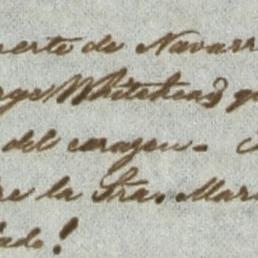 uerte de Navarr
rge Whitehead q
del corazon.
re la Sra. Mar
dado!